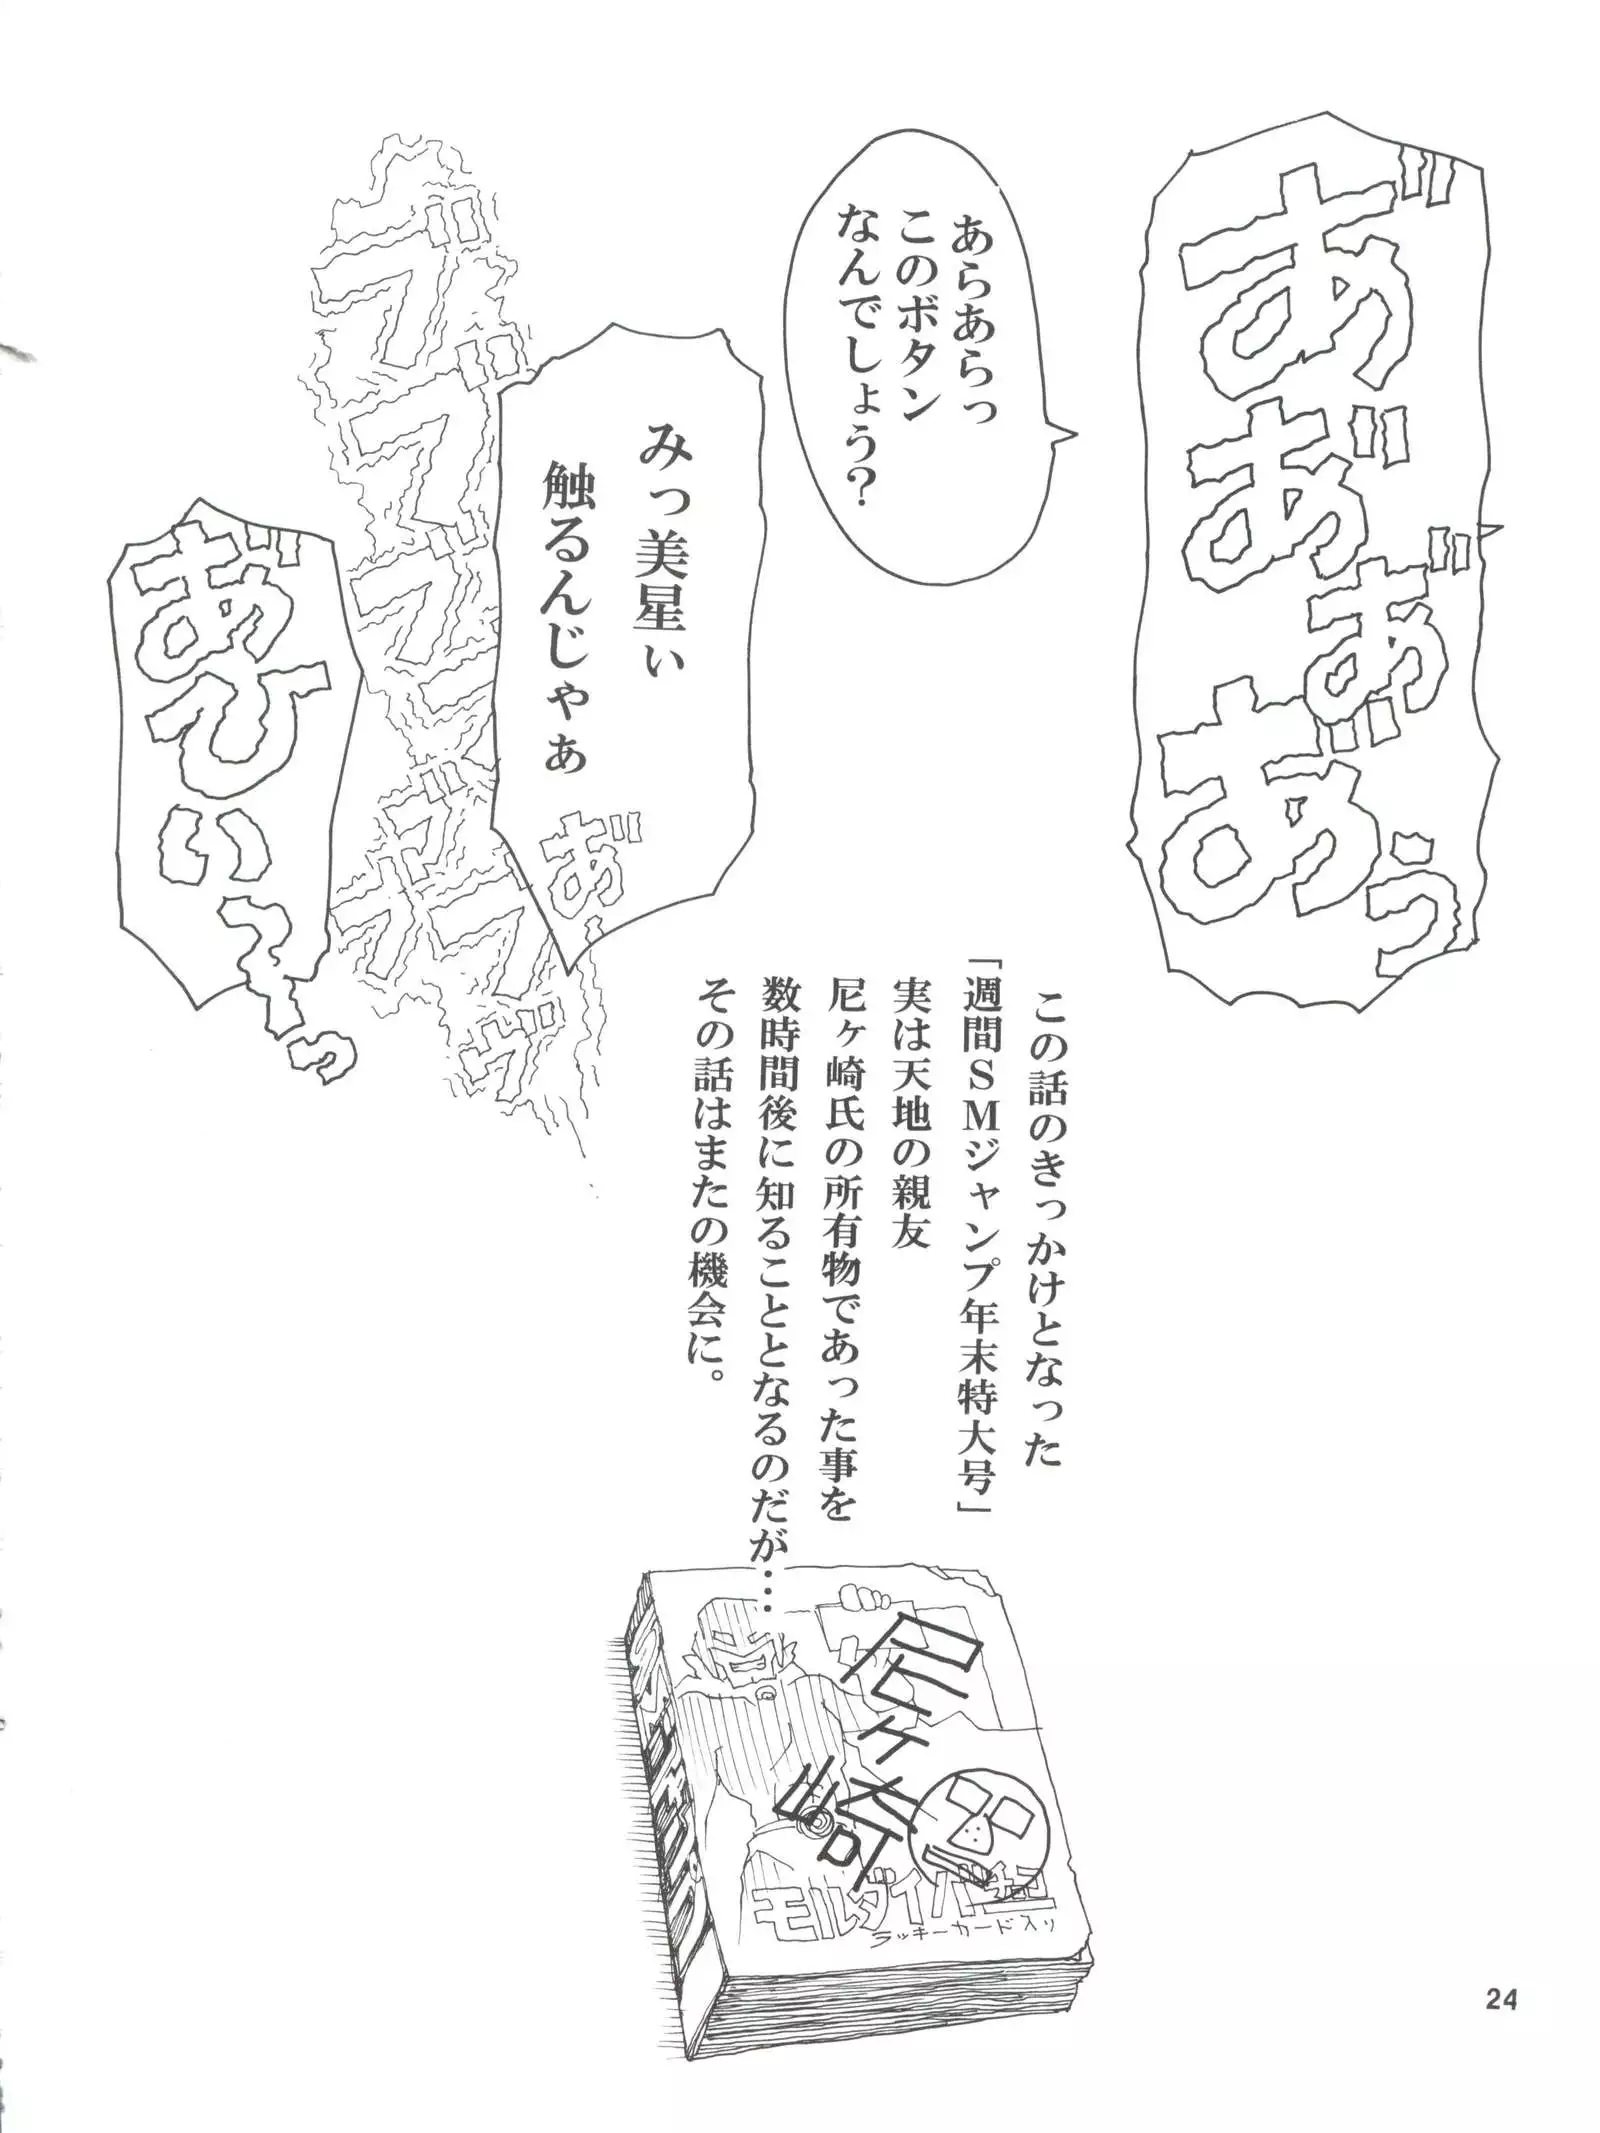 あ゛あ゛あ゛あ゛ぅ
あらあらっ
このボタン
なんでしょう?
みっ美星ぃ
触るんじゃぁ
あ゛ー
あ゛ひぃっ
この話のきっかけとなった
「週間SMジャンプ年末特大号」
実は天地の親友
尼ヶ崎氏の所有物であった事を
数時間後に知ることとなるのだが…
その話はまたの機会に。
尼ヶ崎
モルダイバ
ラッキーカード入り
24